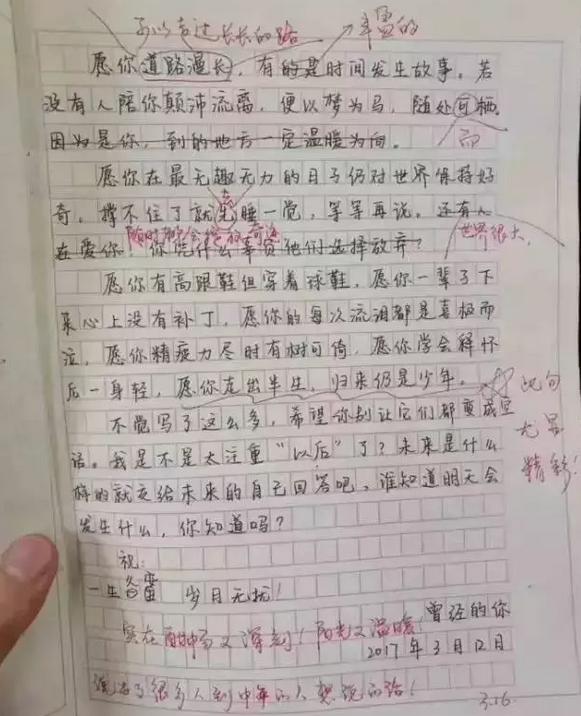 足以走过长长的路 丰富的
愿你道路漫长，有的是时间发生故事。若
没有人陪你颠沛流离，便以梦为马，随处可栖。
因为是你，到的地方一定温暖为向。 而
愿你在最无趣无力的日子仍对世界保持好
奇。撑不住了就先睡一觉，等等再说。还有人
随时都会绽放奇迹 世界很大，
在爱你，你凭什么辜负他们选择放弃？
愿你有高跟鞋但穿着球鞋，愿你一辈子下
来心上没有补丁，愿你的每次流泪都是喜极而
泣，愿你精疲力尽时有树可倚，愿你学会释怀
后一身轻，愿你走出半生，归来仍是少年。 此句
不觉写了这么多，希望你别让它们都变成空 尤显
话。我是不是太注重“以后”了？未来是什么 精彩！
样的就交给未来的自己回答吧，谁知道明天会
发生什么，你知道吗？
祝：
一生 岁月无扰！
曾经的你
实在酣畅又深刻！阳光又温暖！
2017年3月12日
说出了很多人到中年的人想说的话！
3.16.